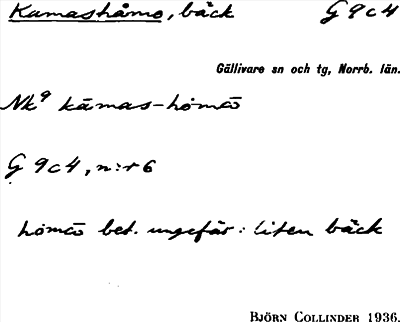 Kamashåmo, bäck G 9 c 4
Gällivare sn och tg, Norrb. län.
Nk⁹ kāmas-hòmɷ̄
G 9 c 4, n:r 6
hòmɷ̄ bet. ungefär: liten bäck
BJÖRN COLLINDER 1936.